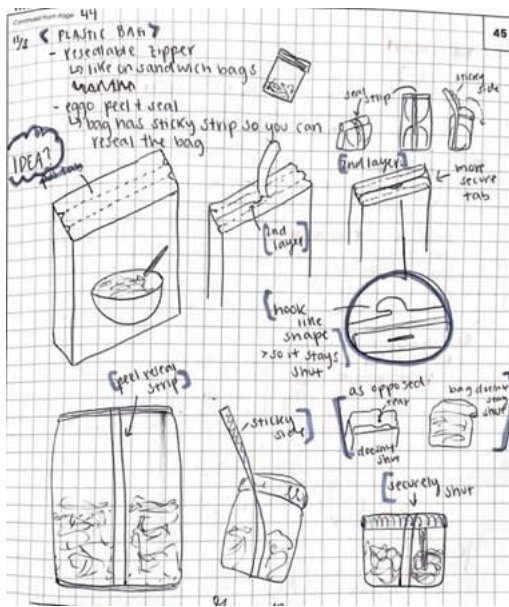 Continued from Page 44
45
11/2 < PLASTIC BAG >
- resealable zipper
↳ like on sandwich bags
- eggo peel + seal
↳ bag has sticky strip so you can
reseal the bag
seal
strip
sticky
side
IDEA?
2nd
layer
2nd layer
more
secure
tab
hook
like
shape
> so it stays
shut
peel reseal
strip
sticky
side
as opposed:
tear
doesn't
shut
bag doesn't
stay
shut
securely shut